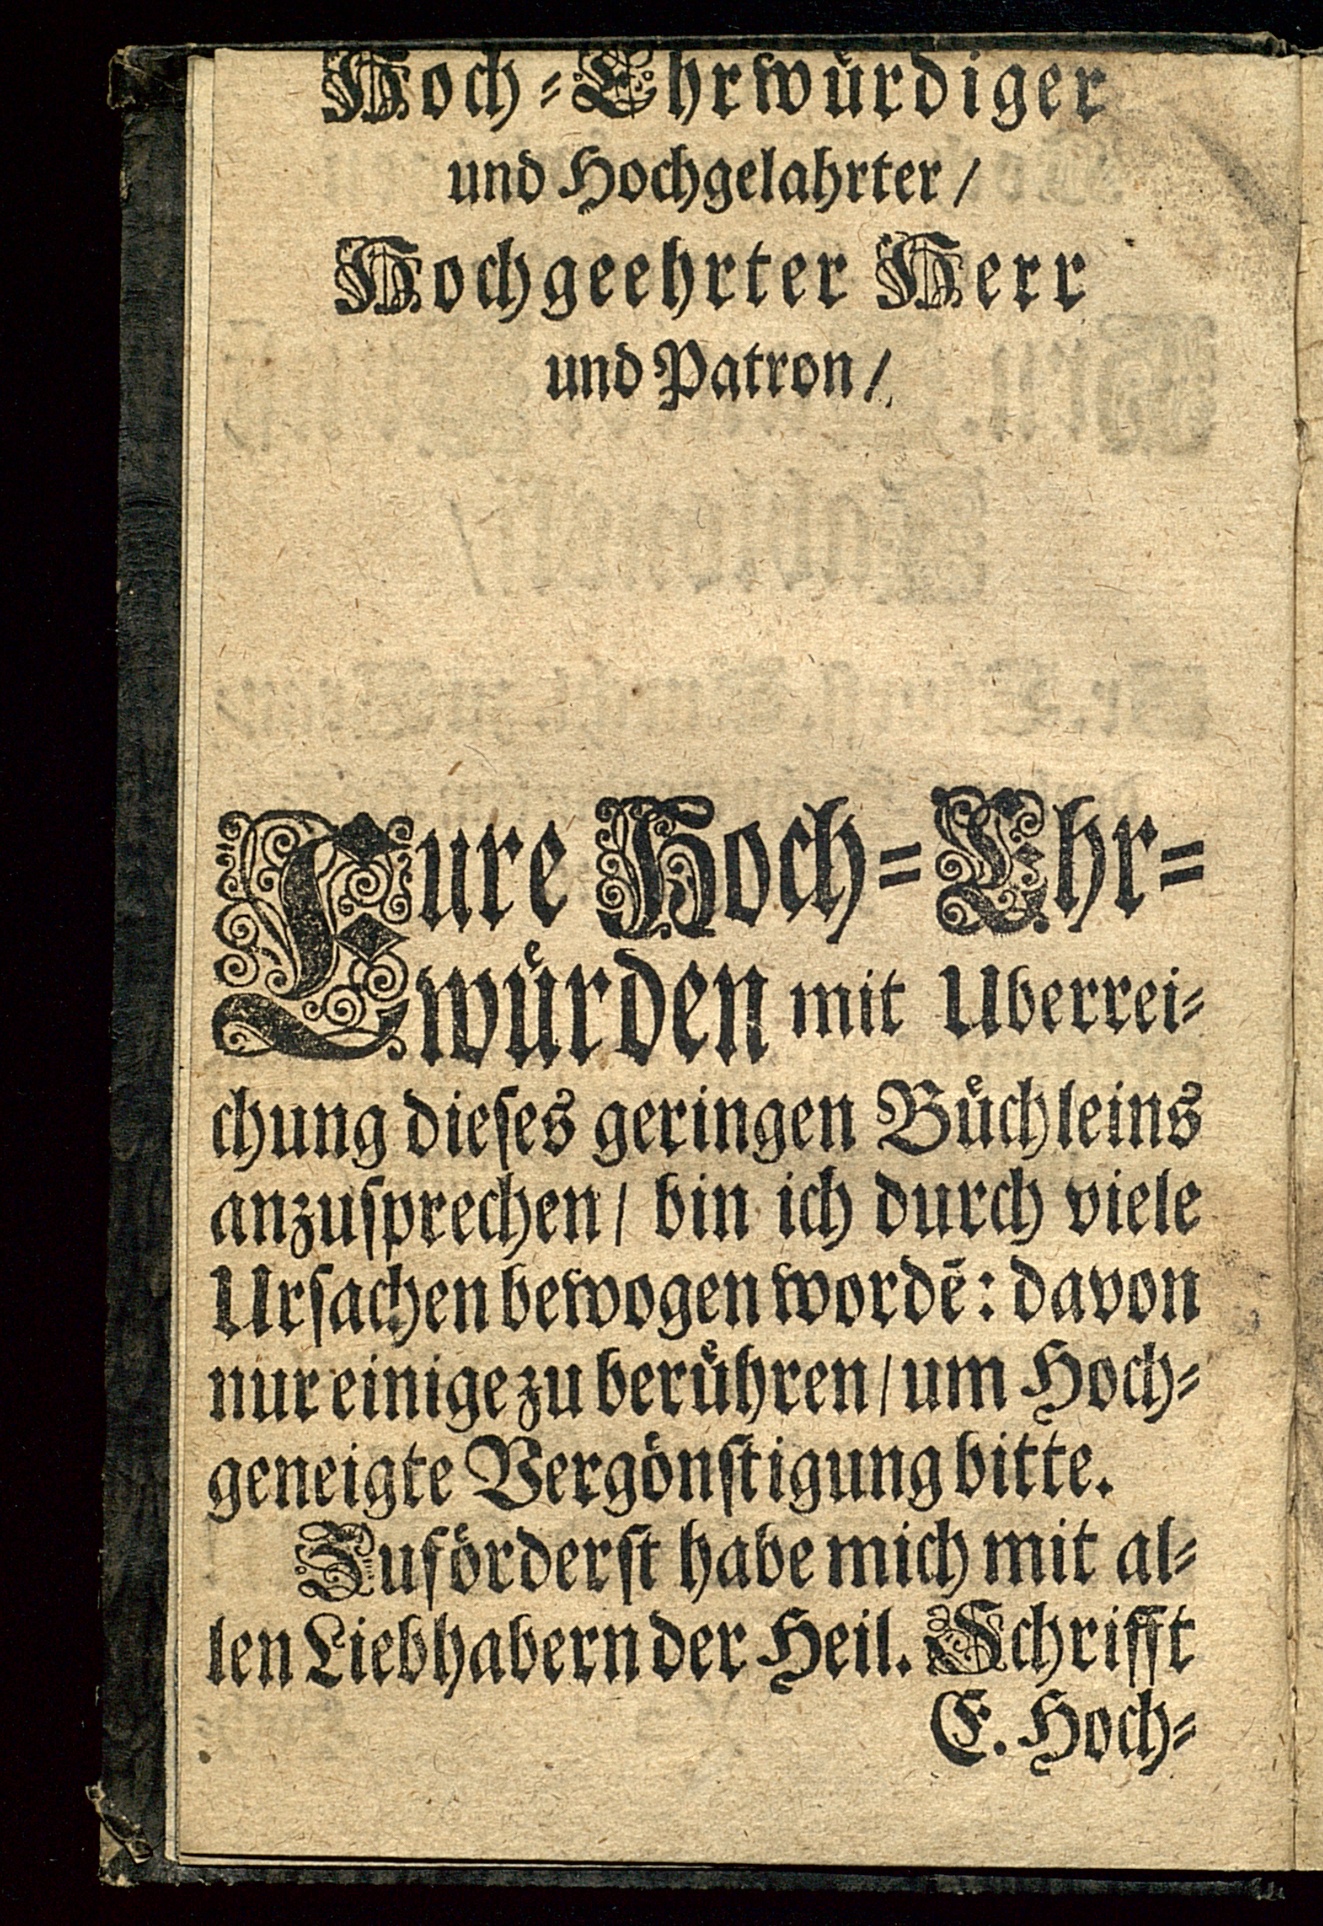 Hoch-Ehrwürdiger
und Hochgelahrter /
Hochgeehrter Herr
und Patron /
Eure Hoch-Ehr-
wuͤrden mit Uberrei-
chung dieſes geringen Buͤchleins
anzuſprechen / bin ich durch viele
Urſachen bewogen wordẽ: davon
nur einige zu beruͤhren / um Hoch-
geneigte Vergönſtigung bitte.
Zuförderſt habe mich mit al-
len Liebhabern der Heil. Schrifft
E. Hoch-